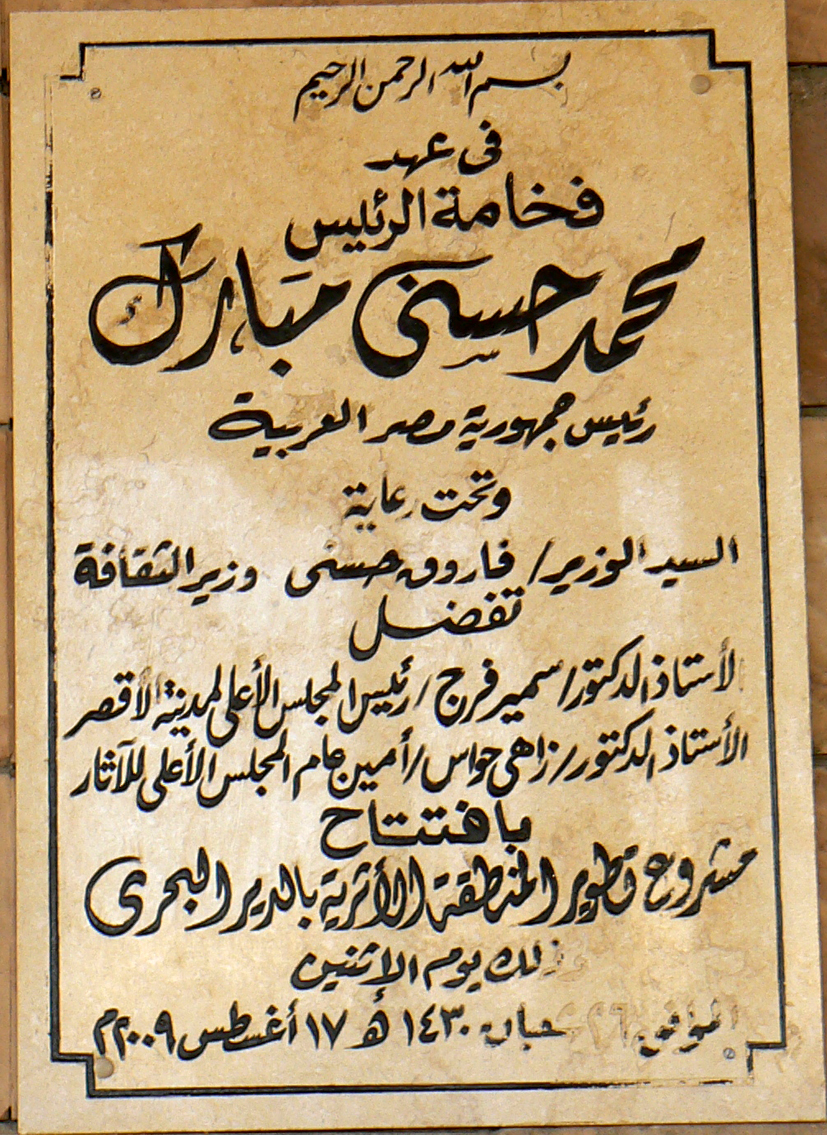 بسم الله الرحمن الرحيم
فى عهد
فخامة الرئيس
محمد حسنى مبارك
رئيس جمهورية مصر العربية
وتحت رعاية
السيد الوزير / فاروق حسنى وزير الثقافة
تفضل
الأستاذ الدكتور / سمير فرج / رئيس المجلس الأعلى لمدينة الأقصر
الأستاذ الدكتور / زاهى حواس / أمين عام المجلس الأعلى للآثار
بافتتاح
مشروع تطوير المنطقة الأثرية بالدير البحرى
وذلك يوم الإثنين
الموافق ٢٦ شعبان ١٤٣٠ هـ ١٧ أغسطس ٢٠٠٩ م